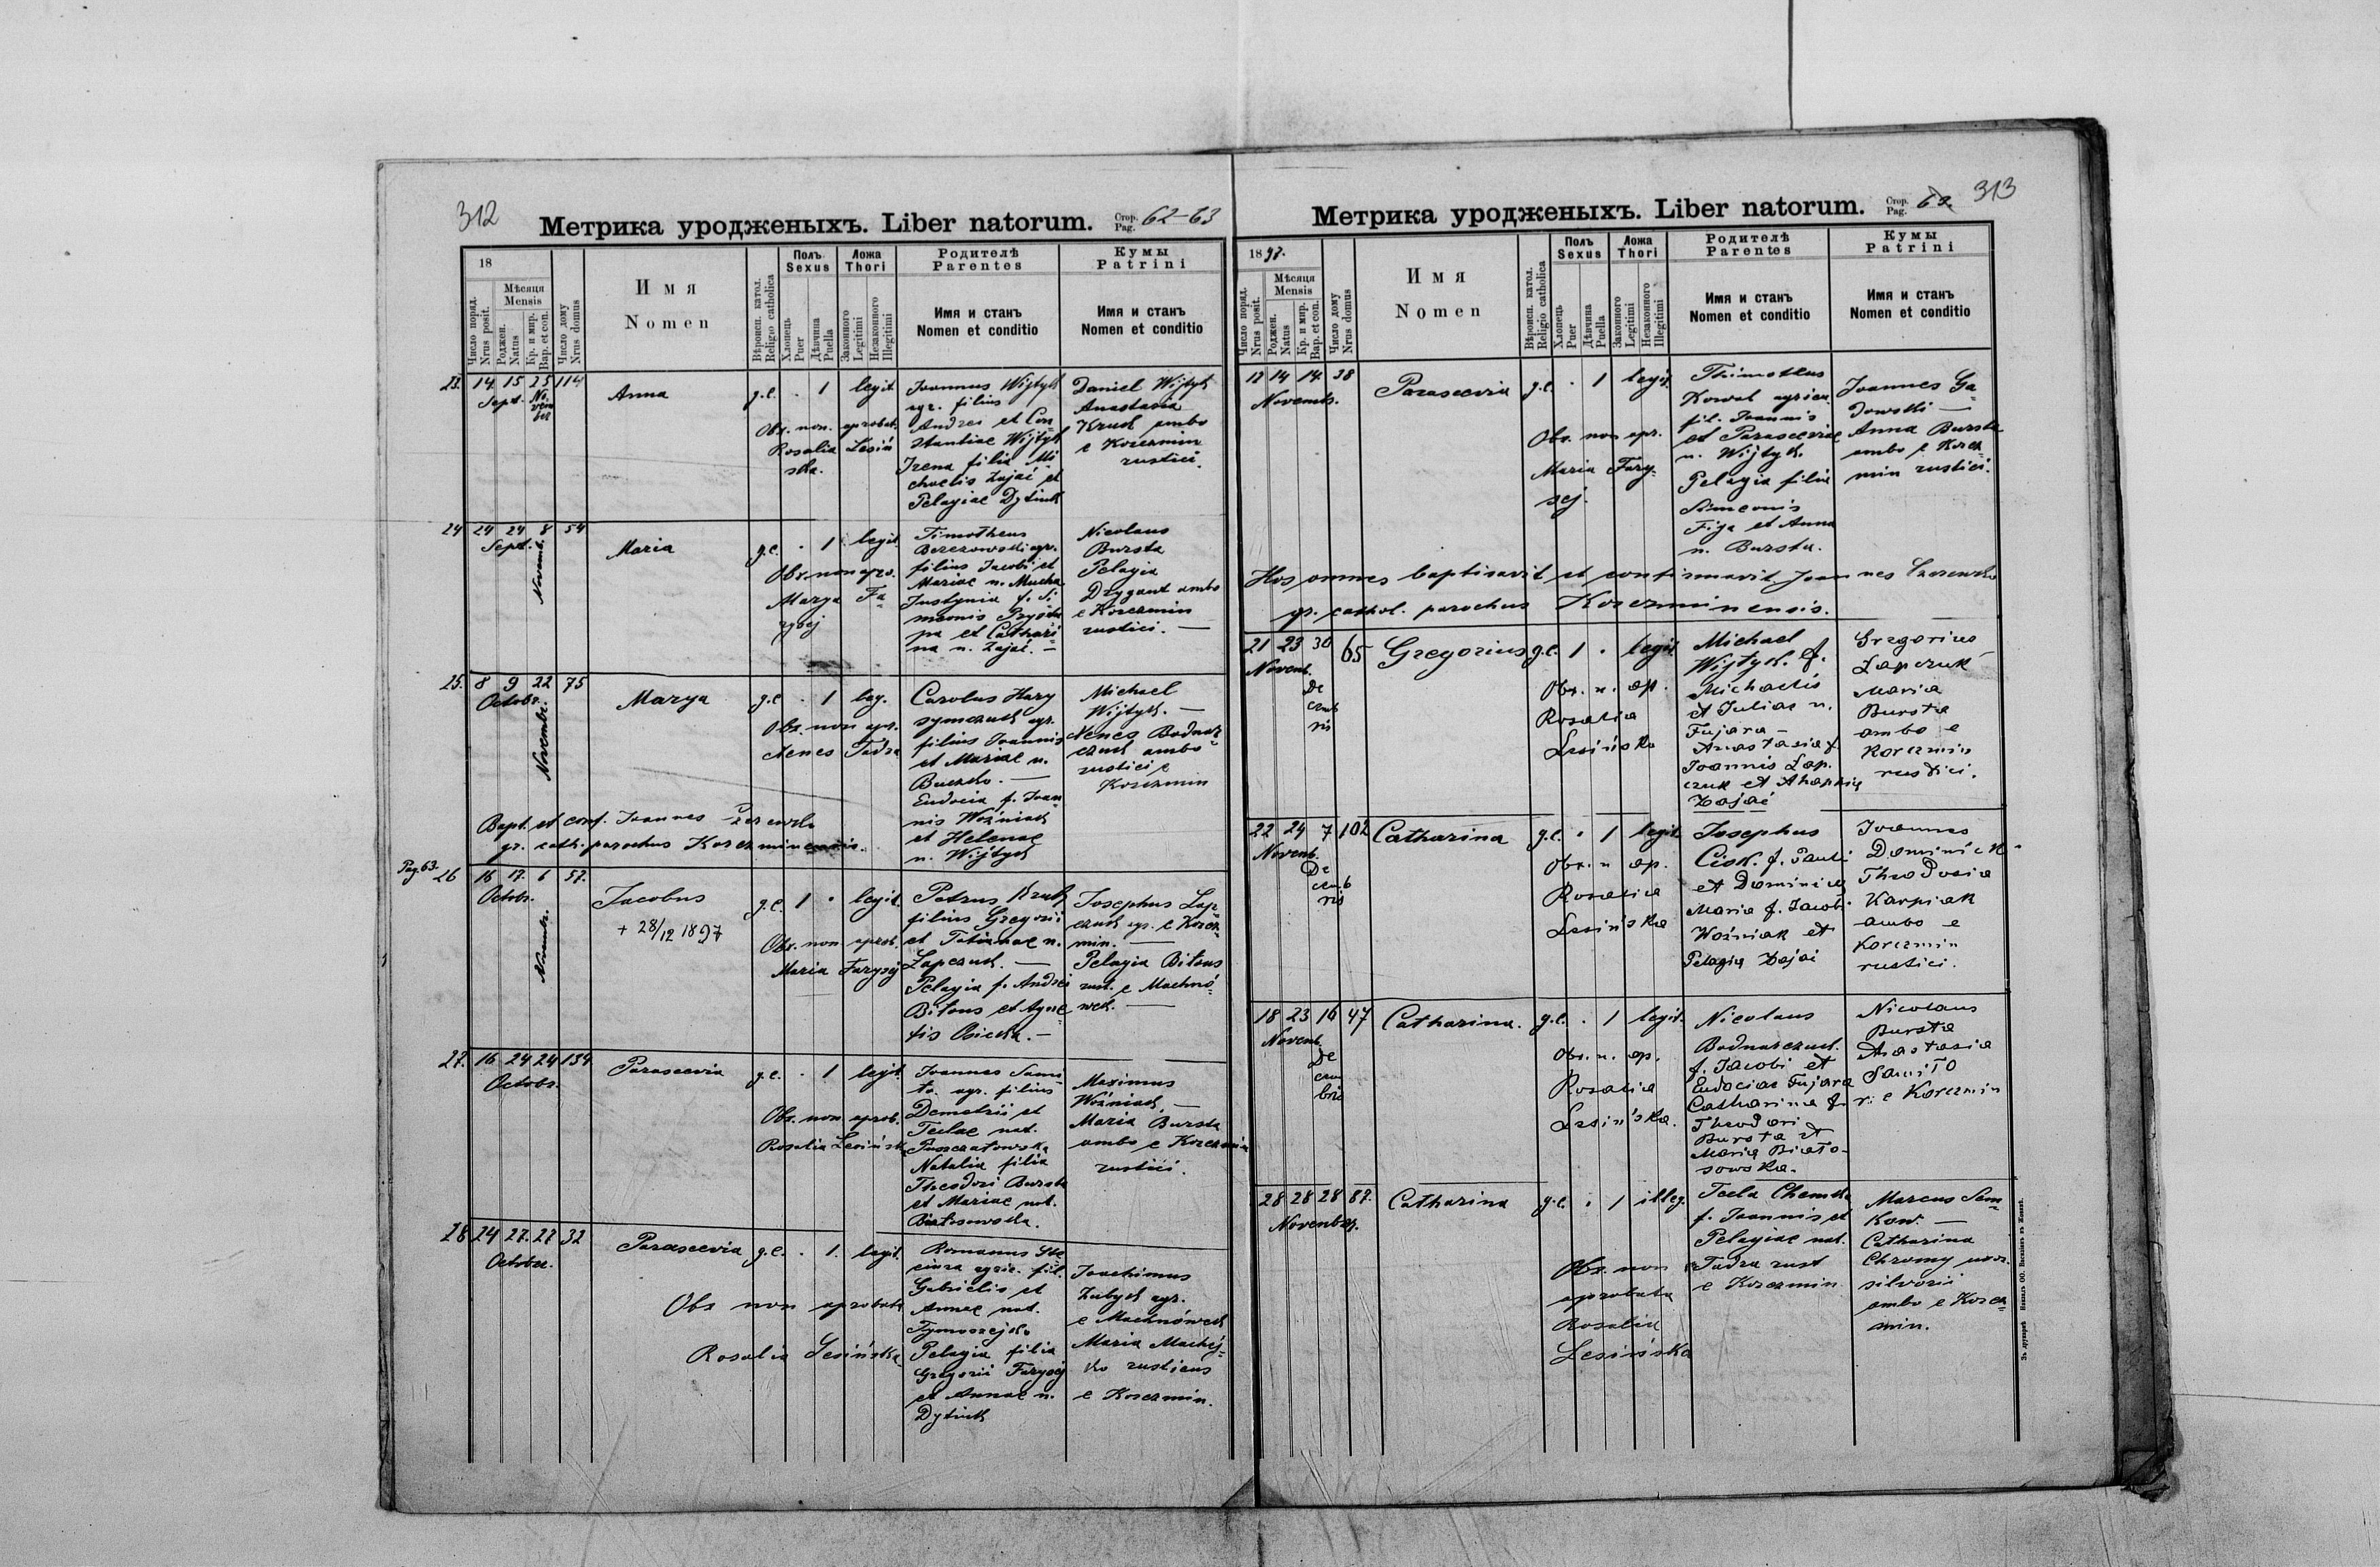 312
Метрика уродженыхъ. Liber natorum. Стор. Pag. 62-63
18
Число поряд. Nrus posit.
Мѣсяця Mensis
Роджен. Natus
Кр. и мир. Bap. et con.
Число дому Nrus domus
Имя
Nomen
Вѣроисп. катол. Religio catholica
Полъ Sexus
Хлопець Puer
Дѣвчина Puella
Ложа Thori
Законного Legitimi
Незаконного Illegitimi
Родителѣ Parentes
Имя и станъ
Nomen et conditio
Кумы Patrini
Имя и станъ
Nomen et conditio
23. 14 15 25 114
Sept. Novem ber
Anna
g.c. . 1 legit.
Obs. non. aprobat.
Rosalia Lesiń
ska.
Joannus Wijtyk
agr. filius
Andrei et Con-
stantiae Wijtyk
Irena filia Mi
chaelis Zając et
Pelagiae Dytiuk
Daniel Wijtyk
Anastasia
Kruk ambo
e Korczmin
rustici.
24 24 24 8 54
Sept. Novemb.
Maria
g.c. . 1 legit.
Obs. non apro.
Marya Fa
rysej
Timotheus
Berezowski agr.
filius Jacobi et
Mariae n. Mucha
Justynia f. Si
meonis
et Cathari
na n. Zając. —
Nicolaus
Bursta
Pelagia
Drygant ambo
e Korczmin
rustici. —
25. 8 9 22 75
Octobr. Novembr.
Marya
g.c . 1 leg.
Obs. non apr.
Agnes Fudra
Carolus Hary
symczuk agr.
filius Joannis
et Mariae n.
Buczko. —
Eudocia f. Joan
nis Woźniak
et Helenae
n. Wijtyk
Michael
Wijtyk. —
Bodnar
czuk ambo
rustici e
Korczmin
Bapt. et conf. Joannes
gr. cath. parochus Korczminensis.
Pag. 63.
26 16 17. 6 57.
Octobr. Novembr.
Jacobus
+ 28/12 1897
g.c. 1 . legit.
Obs. non aprob.
Maria Farysej
Petrus Kruk
filius Gregorii
et Tatianae n.
Łapczuk. —
Pelagia f. Andrei
Bitous et Agne
tis Osiecka. —
Josephus Łap
czuk agr. e Korcz
min. —
Pelagia Bitous
rust. e Machnó
wek. —
27. 16 24 24 134
Octobr.
Parascevia
g.c. . 1 legit.
Obs. non aprob.
Rosalia Lesińska
Joannes Sami
to. agr. filius
Demetrii et
Teclae nat.
Natalia filia
Theodori Bursta
et Mariae nat.
Białosowska.
Maximus
Woźniak. —
Maria Bursta
ambo e Korczmin
rustici.
28 24 27. 27 32
October.
Parascevia g.c. . 1. legit.
Obs non aprobata
Rosalia Lesińska
Romanus
agric. fil.
Gabrielis et
Annae nat.
Pelagia filia
Gregorii Farysej
et Annae n.
Dytiuk
Joachimus
Zubyk agr.
e Machnówek
Maria Machej-
ko rusticus
e Korczmin.
313
Метрика уродженыхъ. Liber natorum. Стор. Pag.
1897.
Число поряд. Nrus posit.
Мѣсяця Mensis
Роджен. Natus
Кр. и мир. Bap. et con.
Число дому Nrus domus
Имя
Nomen
Вѣроисп. катол. Religio catholica
Полъ Sexus
Хлопець Puer
Дѣвчина Puella
Ложа Thori
Законного Legitimi
Незаконного Illegitimi
Родителѣ Parentes
Имя и станъ
Nomen et conditio
Кумы Patrini
Имя и станъ
Nomen et conditio
12 14 14 38
Novemb.
Parascevia
g.c. . 1 legit.
Obs. non apr.
Maria Fary-
sej.
Thimotheus
Kowal agricu.
fil. Joannis
et Parasceviae
n. Wijtyk.
Pelagia filia
Simeonis
Figa et Anna
n. Bursta.
Joannes Ga
dowski —
Anna Bursta
ambo e Korcz
min rustici.
Hos omnes baptisavit et confirmavit Joannes
gr. cathol. parochus Korczminensis.
21 23 30 65
Novemb. De cemb ris
Gregorius g.c. 1 . legit.
Obs. n. ap.
Rosalia
Lesińska
Michael
Wijtyk. f.
Michaelis
et Juliae n.
Fujara —
Anastasia f.
Joannis Łap
czuk et Ahaphia
Zając
Gregorius
Łapczuk
Maria
Bursta
ambo e
Korczmin
rustici.
22 24 7 102
Novemb. De cemb ris
Catharina
g.c. . 1 legit.
Obs. n ap.
Rosalia
Lesińska
Josephus
Cisk. f. Pauli
et Dominica
Maria f. Jacobi
Woźniak et
Pelagia Zając
Joannes
Dominik
Theodosia
Karpiak
ambo e
Korczmin
rustici.
18 23 16 47
Novemb. De cem bris
Catharina. g.c. . 1 legit.
Obs. n. ap.
Rosalia
Lesińska.
Nicolaus
Bodnarczuk.
f. Jacobi et
Eudociae Fujara
Catharina f.
Theodori
Bursta et
Maria Biało-
sowska.
Nicolaus
Bursta
Anastasia
Samito
r: e Korczmin
28 28 28 87.
Novembr.
Catharina g.c. . 1 illeg.
Obs. non
aprobata
Rosalia
Lesińska
Tecla Chomska
f. Joannis et
Pelagiae nat.
Fudra rust
e Korczmin
Marcus Sem-
kow. —
Catharina
Chromy uxor.
silvarii
ambo e Korcz
min.